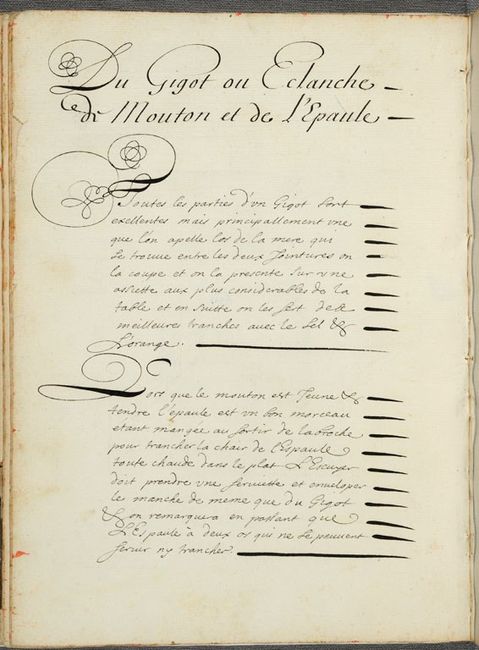 Du Gigot ou Eclanche
de Mouton et de L'Epaule
Toutes les parties d'vn Gigot sont
exellentes mais principallement vne
que l'on apelle l'os de la mere qui
se trouve entre les deux Jointures on
la coupe et on la presente sur vne
assiette aux plus considerables de la
table et en suitte on les sert des
meilleures tranches avec le Sel &
L'orange.
Lors que le mouton est Jeune &
tendre l'epaule est vn bon morceau
etant mangée au sortir de la broche
pour trancher la chair de l'Espaule
toute chaude dans le plat L'Escuyer
doit prendre vne serviette et enveloper
le manche de meme que du Gigot
& on remarquera en passant que
L'Espaule à deux os qui ne se peuvent
servir ny trancher